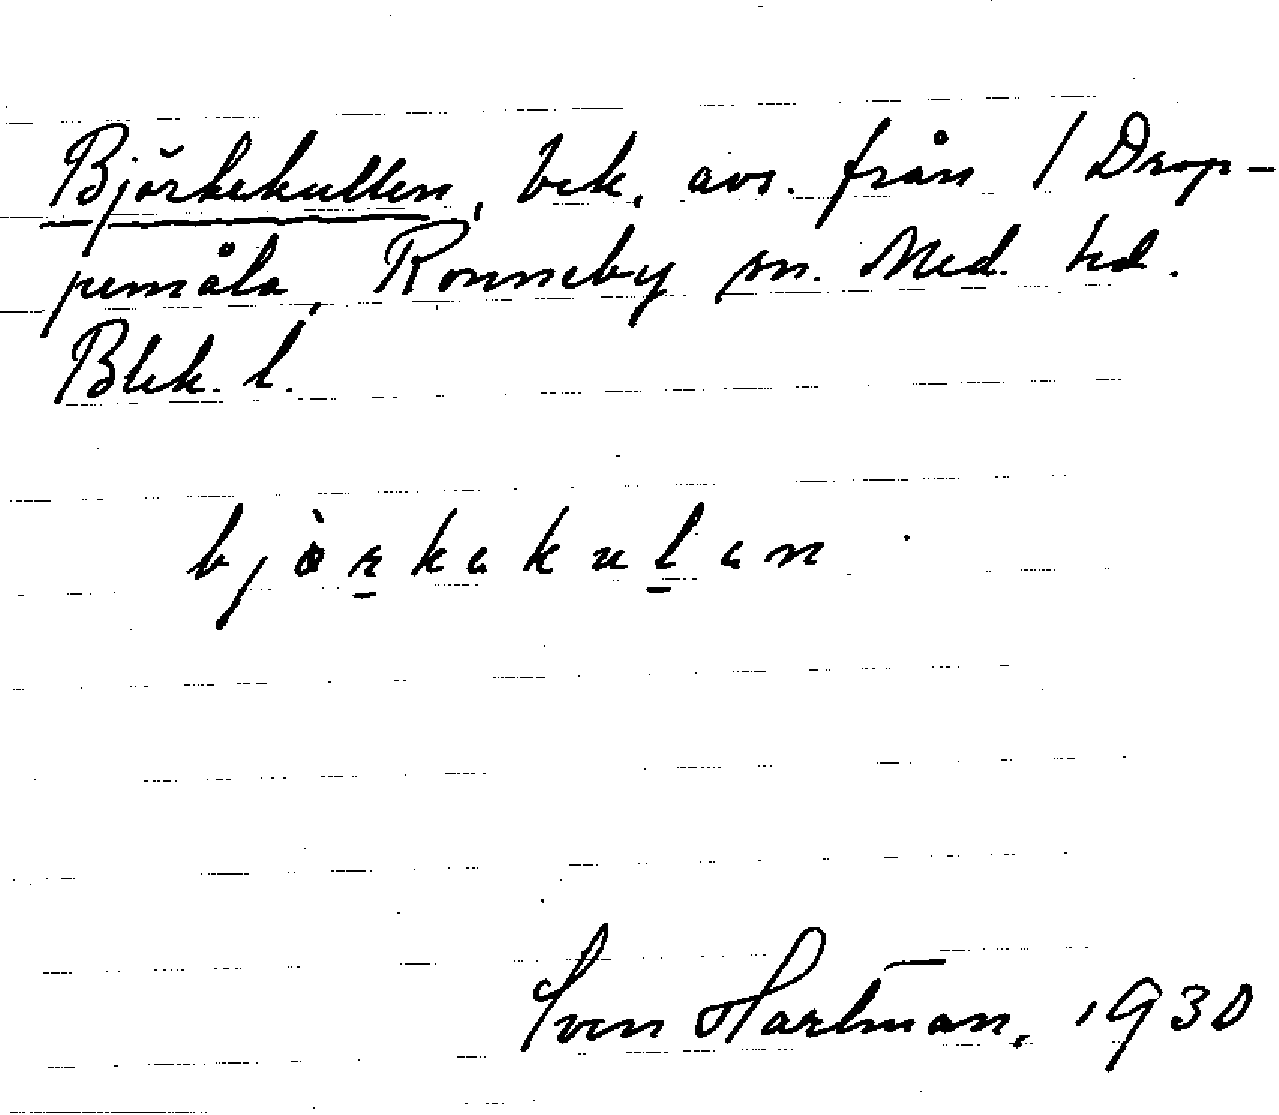 Björkekullen, bek. avs. från 1 Drop-
pemåla, Ronneby sn. Med. hd.
Blek. l.
bjòrkakulan
Sven Hartman, 1930